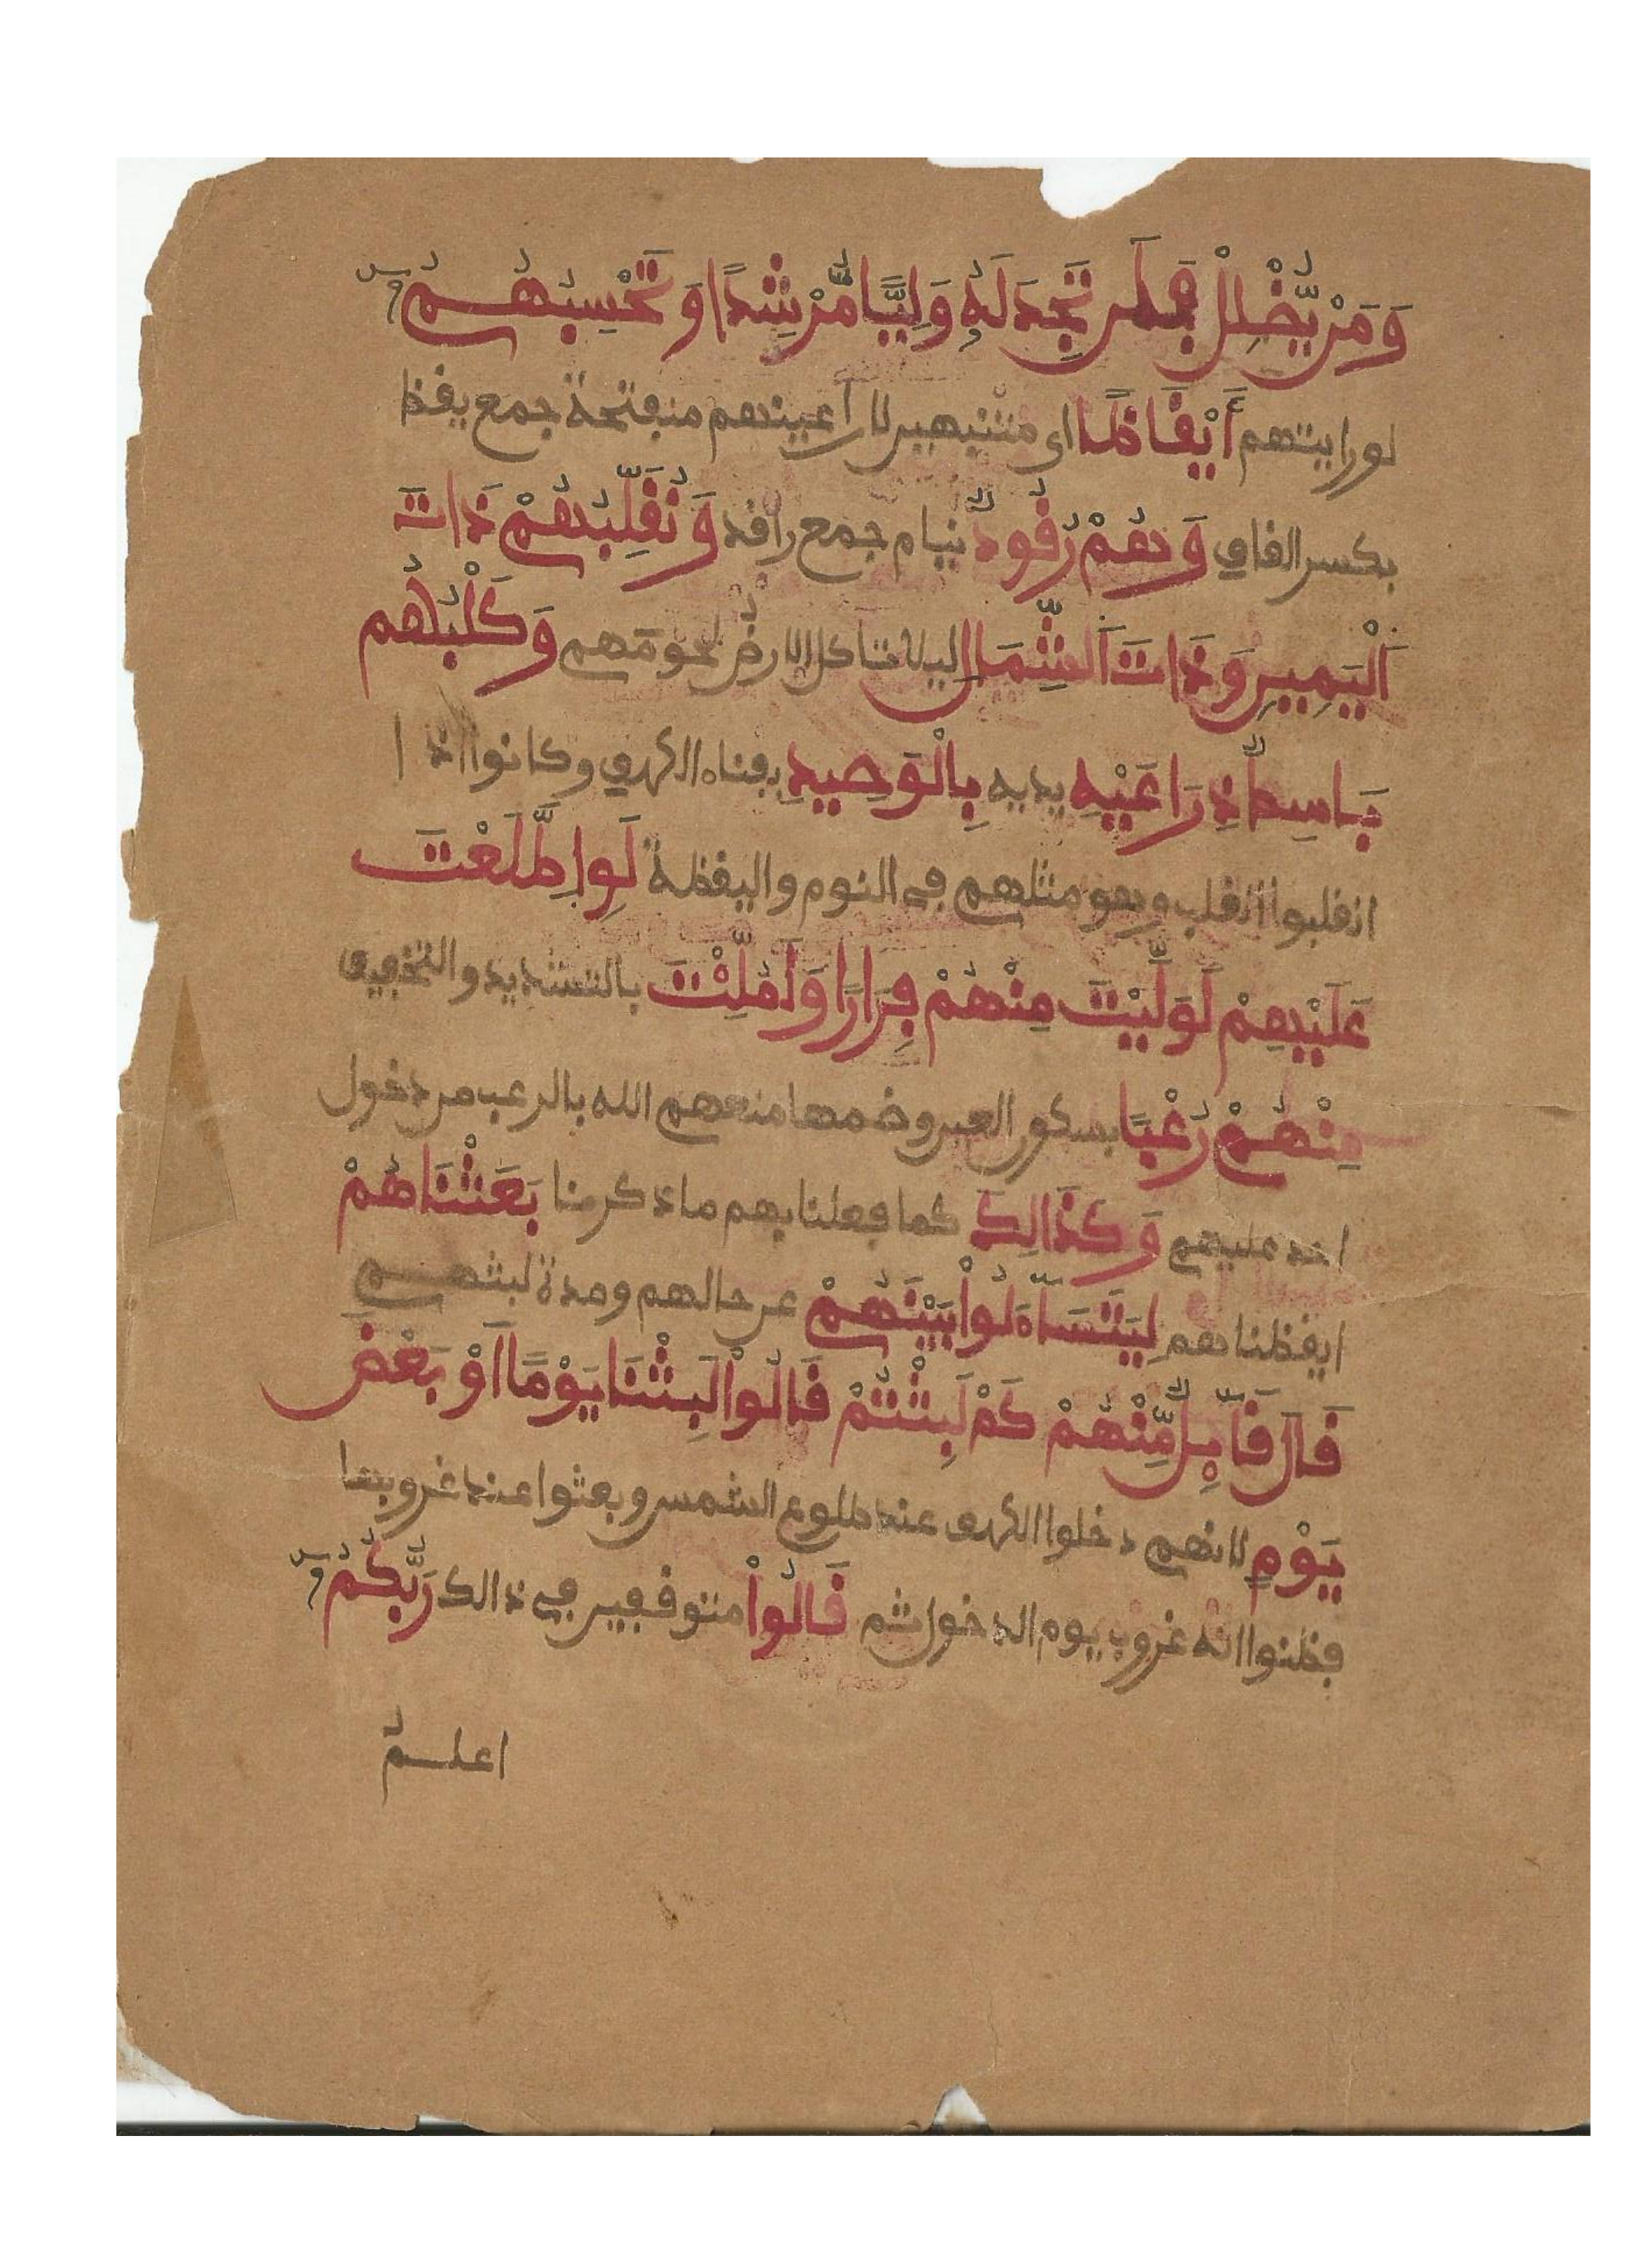 وَمَنْ يُّضْلِلْ فَلَن تَجِدَ لَهُۥ وَلِيًّا مُّرْشِدًا وَتَحْسِبُهُمُۥ
لو رايتهم أَيْقَاظًا اى منتبهين لان اعينهم منفتحة جمع يقظ
بكسر القاف وَهُمْ رُقُودٌ نيام جمع راقد وَنُقَلِّبُهُمْ ذَاتَ
اَلْيَمِينِ وَذَاتَ اَلشِّمَالِ ليلا تاكل الارضُ لحومَهم وَكَلْبُهُم
بَاسِطٌ ذِرَاعَيْهِ يديه بِالْوَصِيدِ بفناء الكهف وكانوا اذا
انقلبوا انقلب وهو مثلهم في النوم واليقظة لَوِ اِطَّلَعْتَ
عَلَيْهِمْ لَوَلَّيْتَ مِنْهُمْ فِرَارًا وَلَمُلِّئْتَ بالتشديد والتخفيف
مِنْهُمْ رُعْبًا بسكون العين وضمها منعهم الله بالرعب من دخول
احد عليهم وَكَذَالِكَ كما فعلنا بهم ما ذكرنا بَعَثْنَاهُمْ
ايقظناهم لِيَتَسَآءَلُواْ بَيْنَهُمْ عن حالهم ومدة لبثهم
قَالَ قَآئِلٌ مِّنْهُمْ كَمْ لَبِثْتُمْ قَالُواْ لَبِثْنَا يَوْمًا اَوْ بَعْضَ
يَوْمٍ لانهم دخلوا الكهف عند طلوع الشمس وبعثوا عند غروبها
فظنوا انه غروب يوم الدخول ثم قَالُواْ متوقفين في ذالك رَبُّكُمُۥ
اعلمُ